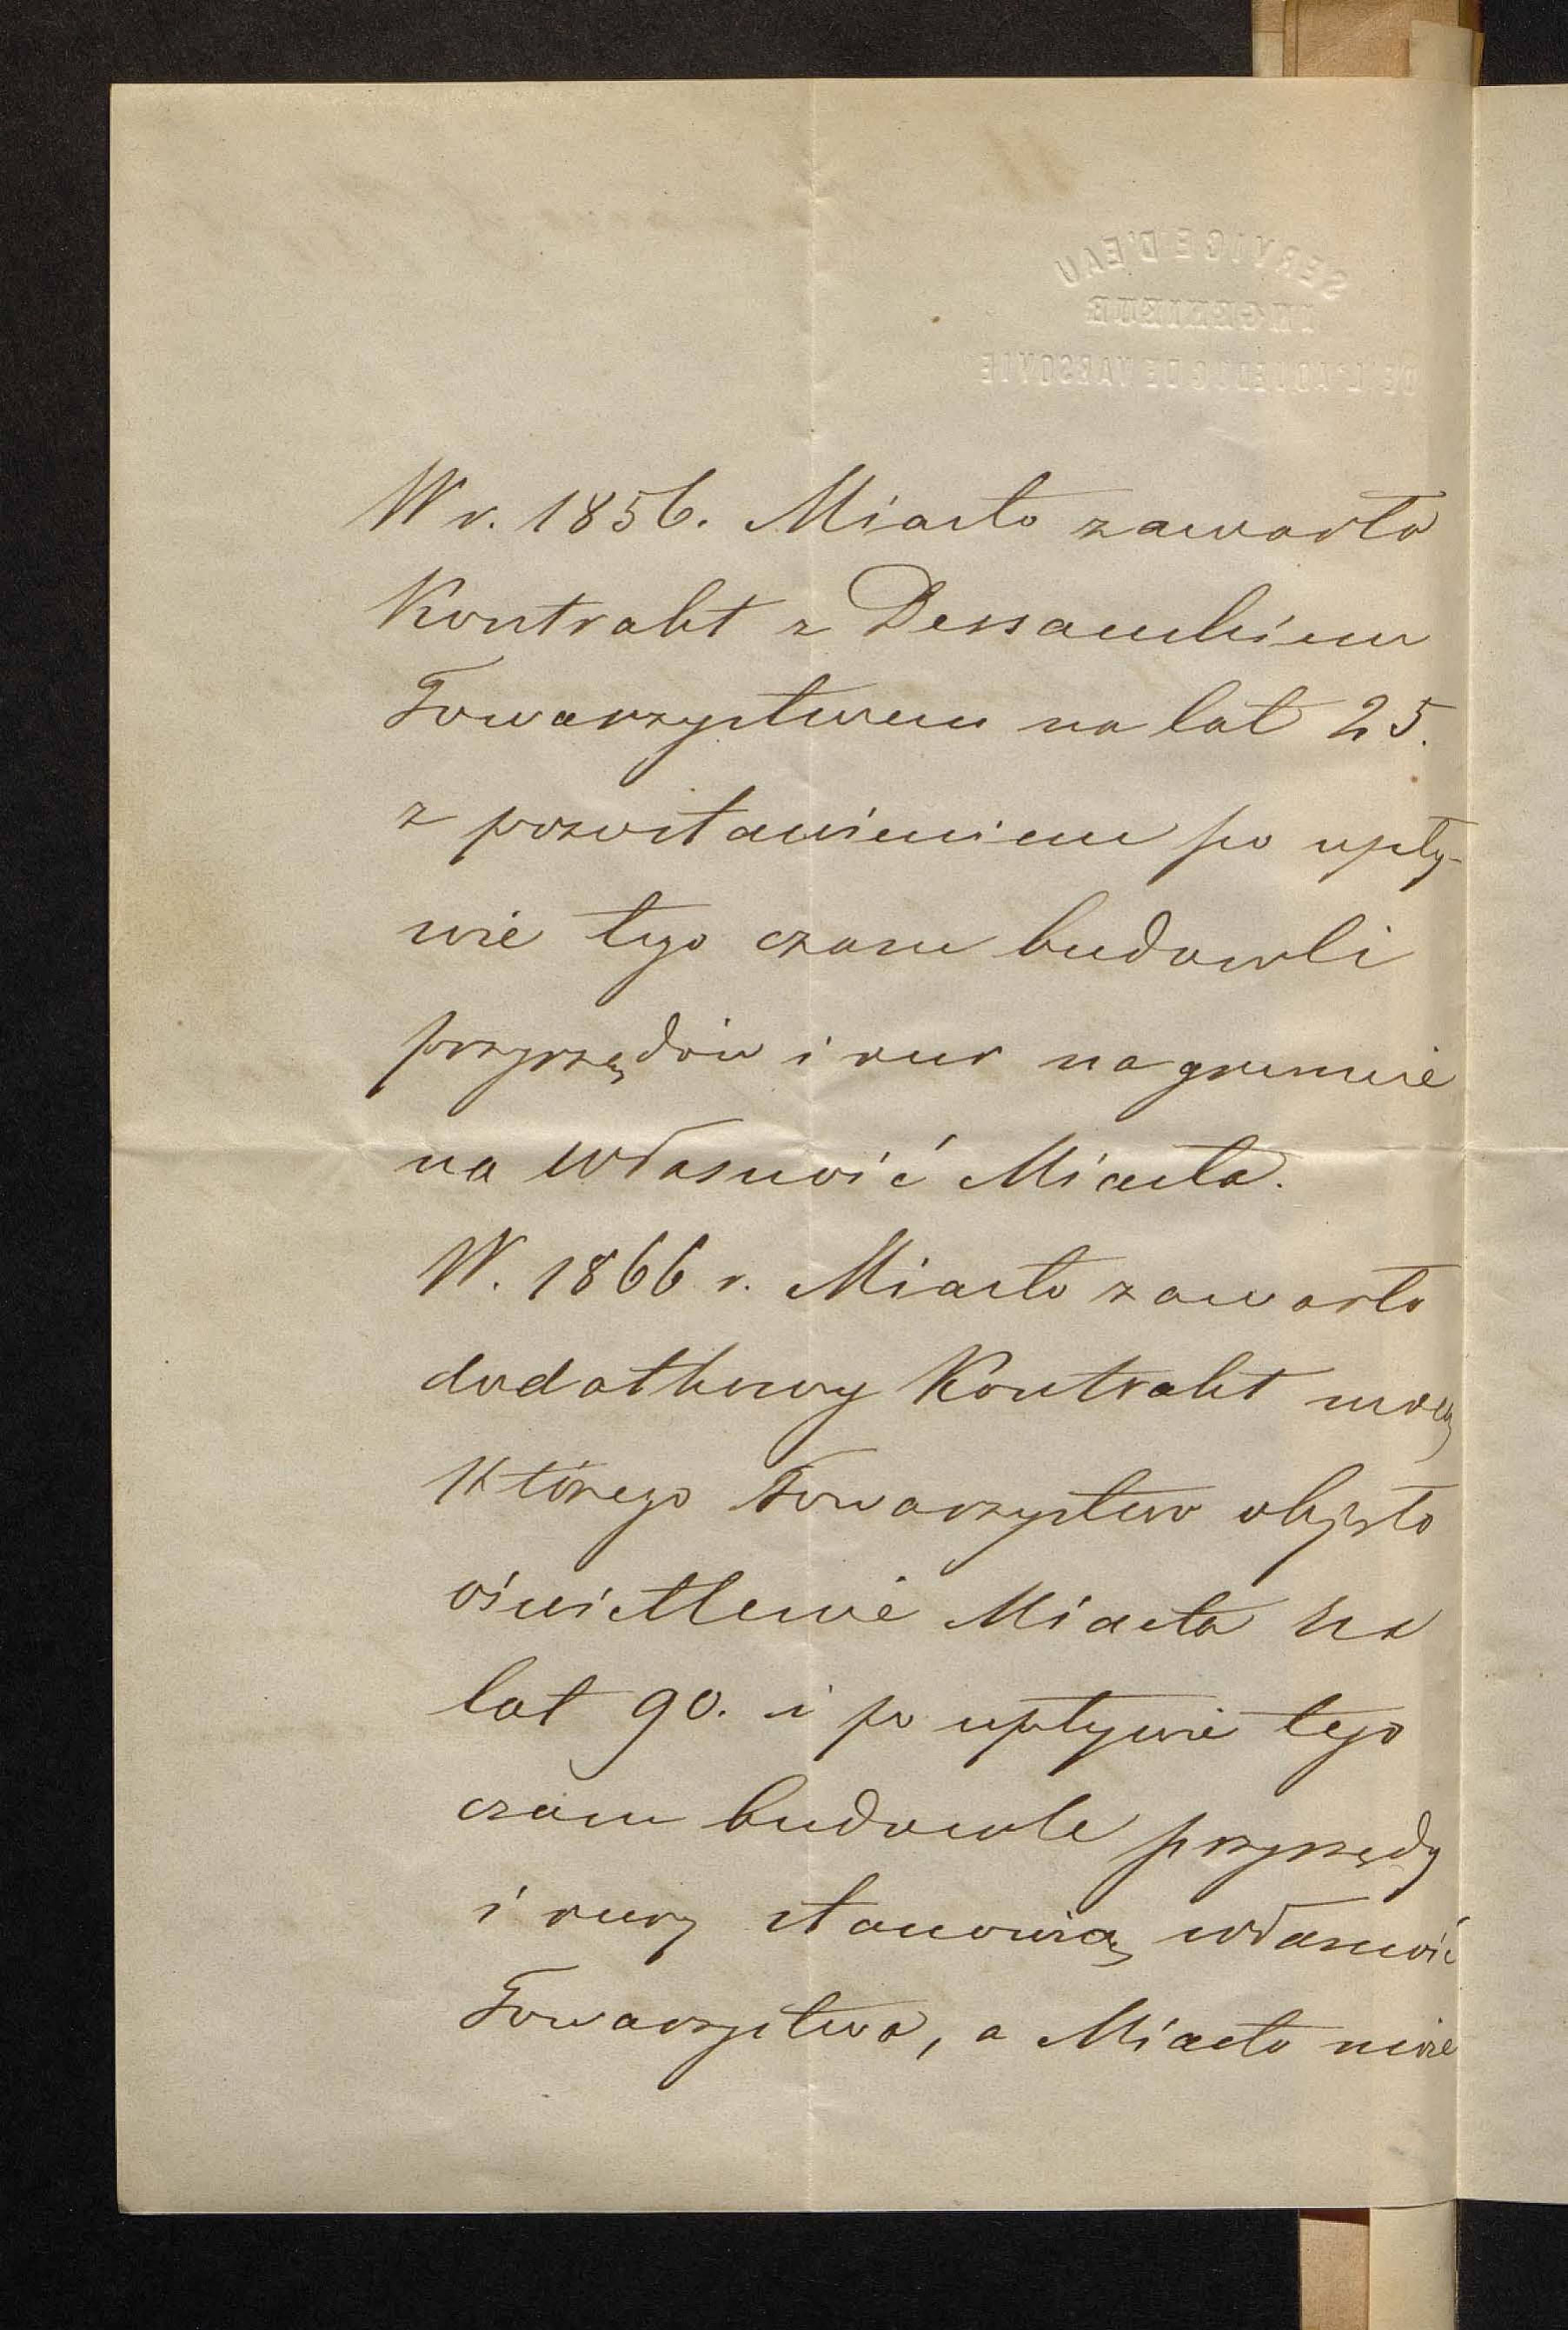 SERVICE D'EAU
INGENIEUR
DE L'AQUEDUC DE VARSOVIE
W r. 1856. Miasto zawarło
Kontrakt z Dessauskiem
Towarzystwem na lat 25.
z pozostawieniem po upły-
wie tego czasu budowli
przyrządów i rur na gruncie
na własność Miasta.
W. 1866 r. Miasto zawarło
dodatkowy Kontrakt mocą
którego Towarzystwo objęło
oświetlenie Miasta na
lat 90. i po upływie tego
czasu budowle przyrządy
i rury stanowią własność
Towarzystwa, a Miasto może